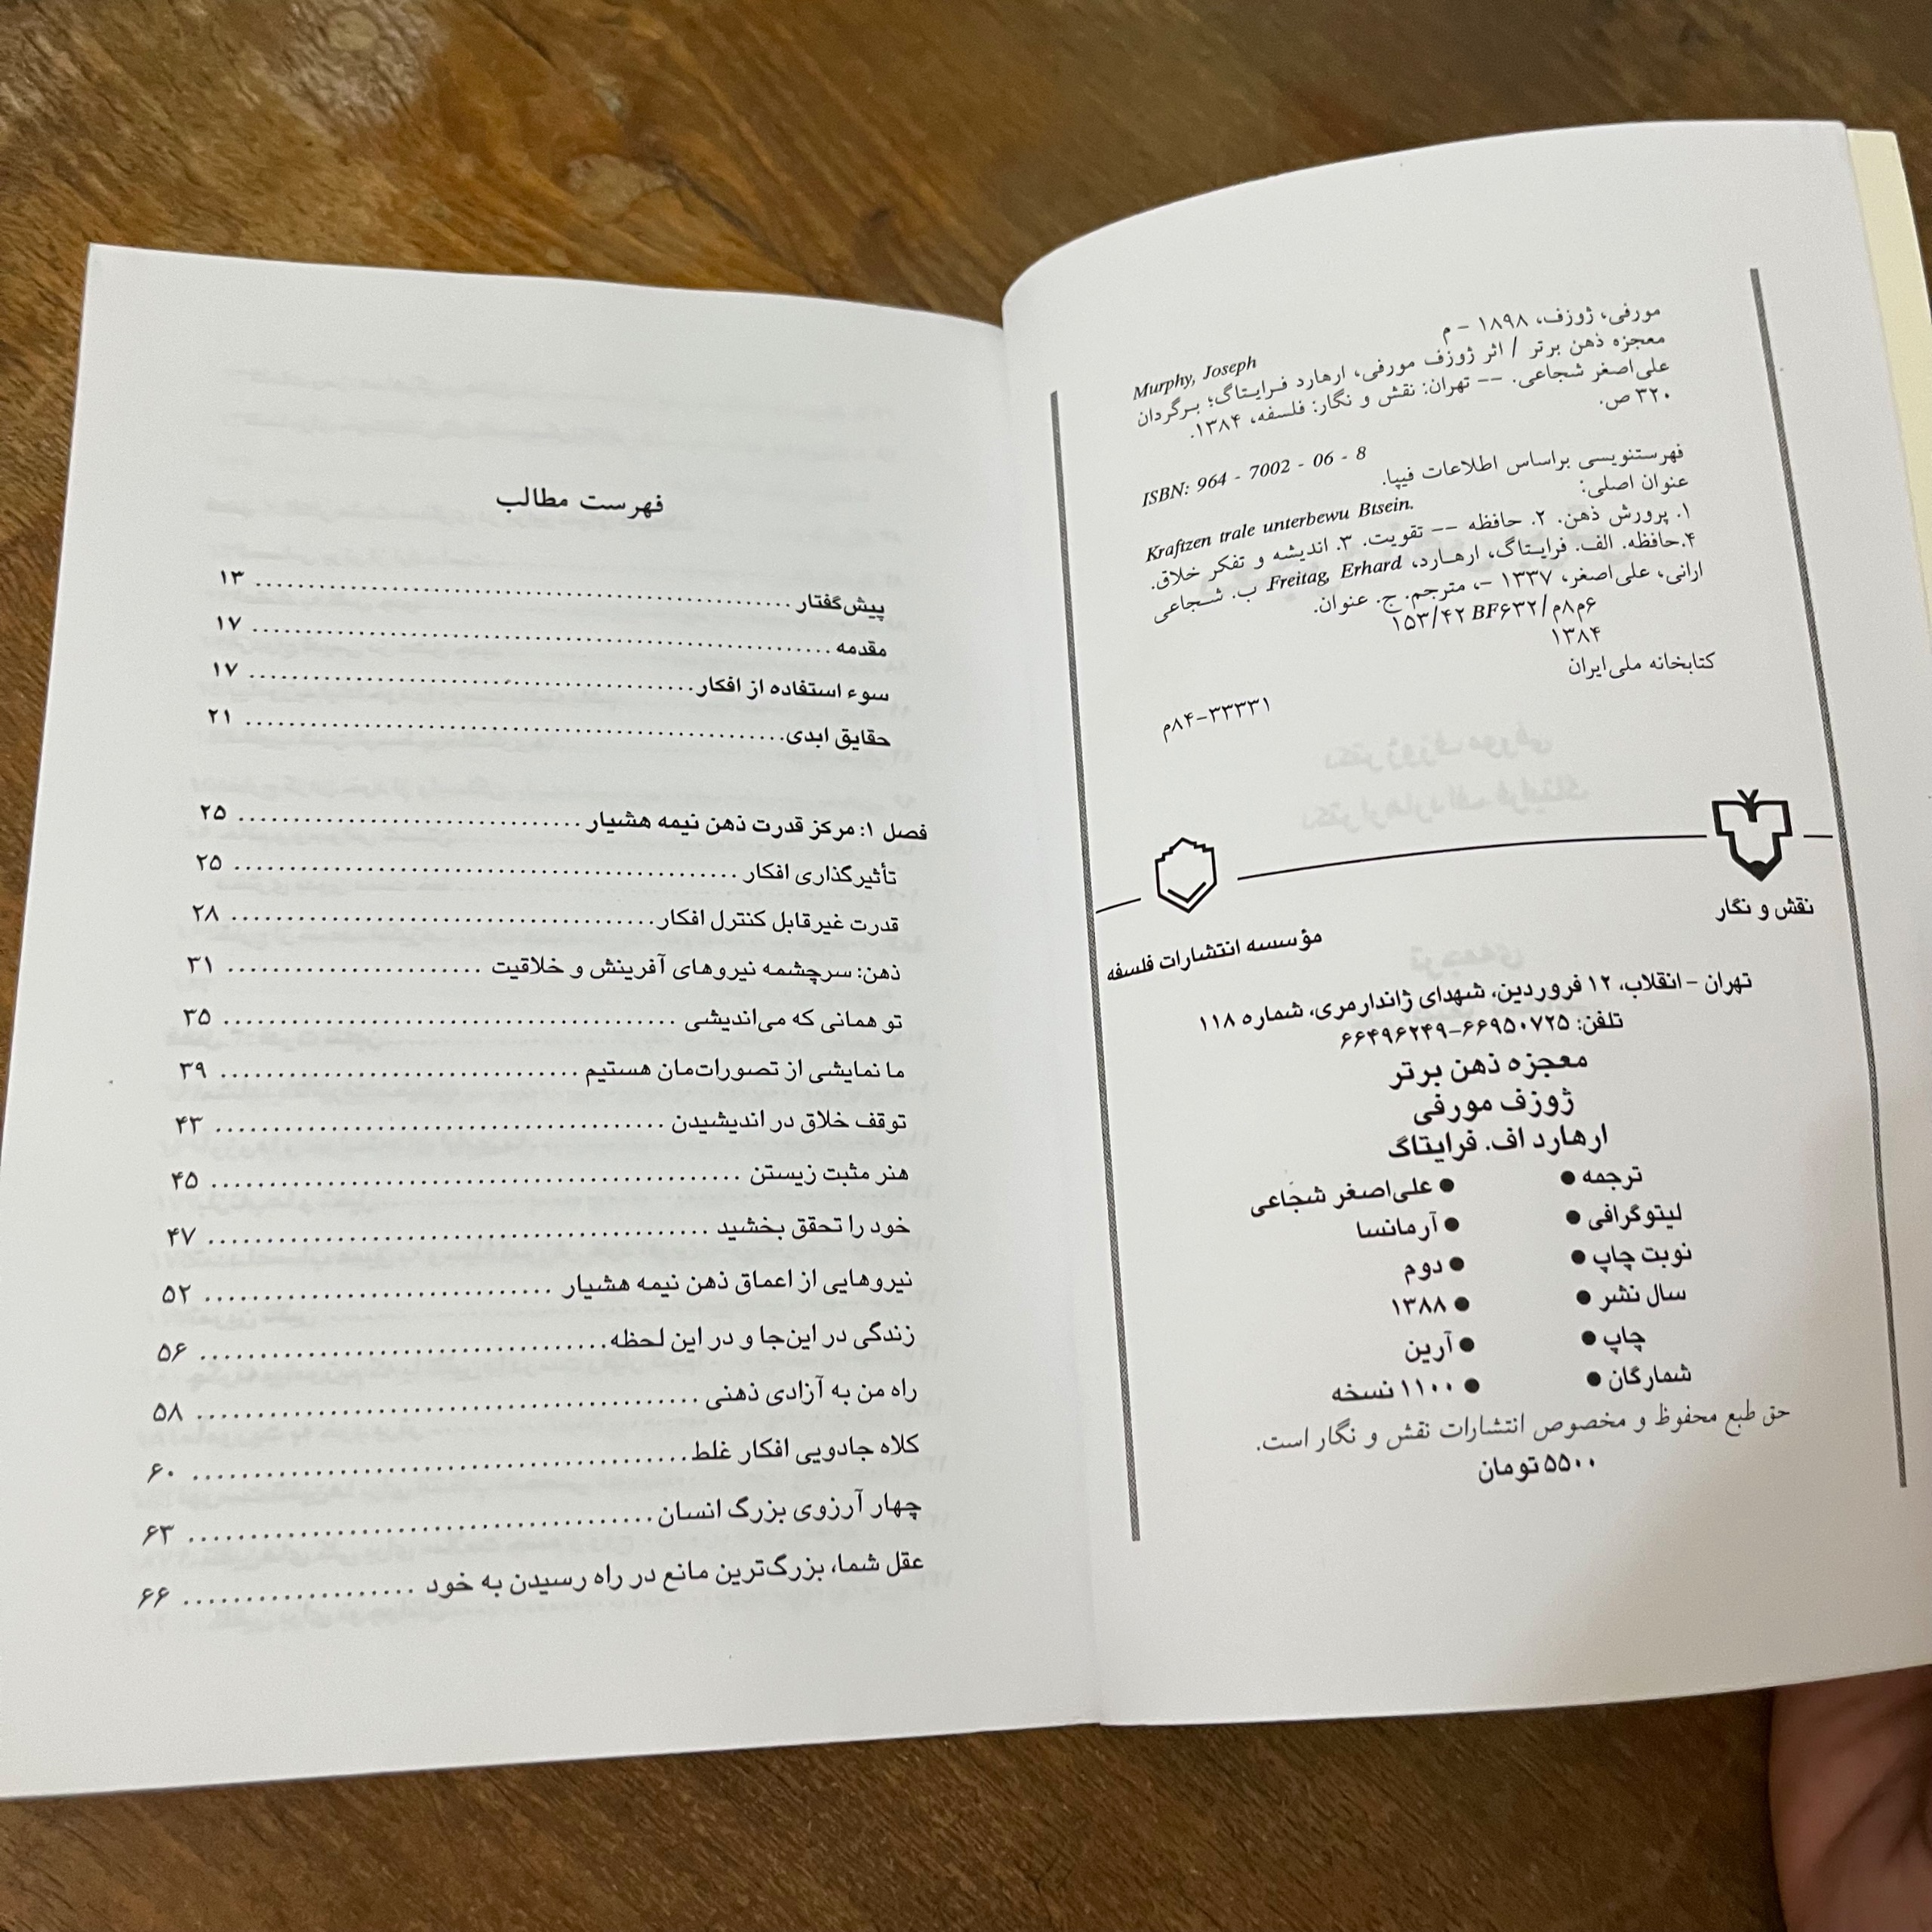 مورفی، ژوزف، ۱۸۹۸ – م
Murphy, Joseph
معجزه ذهن برتر / اثر ژوزف مورفی، ارهارد فرایتاگ؛ برگردان
علی‌اصغر شجاعی. –– تهران: نقش و نگار: فلسفه، ۱۳۸۴.
۳۲۰ ص.
ISBN: 964 - 7002 - 06 - 8
فهرستنویسی براساس اطلاعات فیپا.
عنوان اصلی:
Kraftzen trale unterbewu Btsein.
۱. پرورش ذهن. ۲. حافظه –– تقویت. ۳. اندیشه و تفکر خلاق.
۴.حافظه. الف. فرایتاگ، ارهارد، Freitag, Erhard. ب. شجاعی
ارانی، علی‌اصغر، ۱۳۳۷ –، مترجم. ج. عنوان.
۱۵۳/۴۲ BF۶۳۲/م۸م۶
۱۳۸۴
کتابخانه ملی‌ایران
م۸۴–۳۳۳۳۱
نقش و نگار
مؤسسه انتشارات فلسفه
تهران – انقلاب، ۱۲ فروردین، شهدای ژاندارمری، شماره ۱۱۸
تلفن: ۶۶۹۵۰۷۲۵–۶۶۴۹۶۲۴۹
معجزه ذهن برتر
ژوزف مورفی
ارهارد اف. فرایتاگ
ترجمه ● ● علی‌اصغر شجاعی
لیتوگرافی ● ● آرمانسا
نوبت چاپ ● ● دوم
سال نشر ● ● ۱۳۸۸
چاپ ● ● آرین
شمارگان ● ● ۱۱۰۰ نسخه
حق طبع محفوظ و مخصوص انتشارات نقش و نگار است.
۵۵۰۰ تومان
فهرست مطالب
پیش‌گفتار ........ ۱۳
مقدمه ........ ۱۷
سوء استفاده از افکار ........ ۱۷
حقایق ابدی ........ ۲۱
فصل ۱: مرکز قدرت ذهن نیمه هشیار ........ ۲۵
تأثیرگذاری افکار ........ ۲۵
قدرت غیرقابل کنترل افکار ........ ۲۸
ذهن: سرچشمه نیروهای آفرینش و خلاقیت ........ ۳۱
تو همانی که می‌اندیشی ........ ۳۵
ما نمایشی از تصورات‌مان هستیم ........ ۳۹
توقف خلاق در اندیشیدن ........ ۴۳
هنر مثبت زیستن ........ ۴۵
خود را تحقق بخشید ........ ۴۷
نیروهایی از اعماق ذهن نیمه هشیار ........ ۵۲
زندگی در این‌جا و در این لحظه ........ ۵۶
راه من به آزادی ذهنی ........ ۵۸
کلاه جادویی افکار غلط ........ ۶۰
چهار آرزوی بزرگ انسان ........ ۶۳
عقل شما، بزرگ‌ترین مانع در راه رسیدن به خود ........ ۶۶